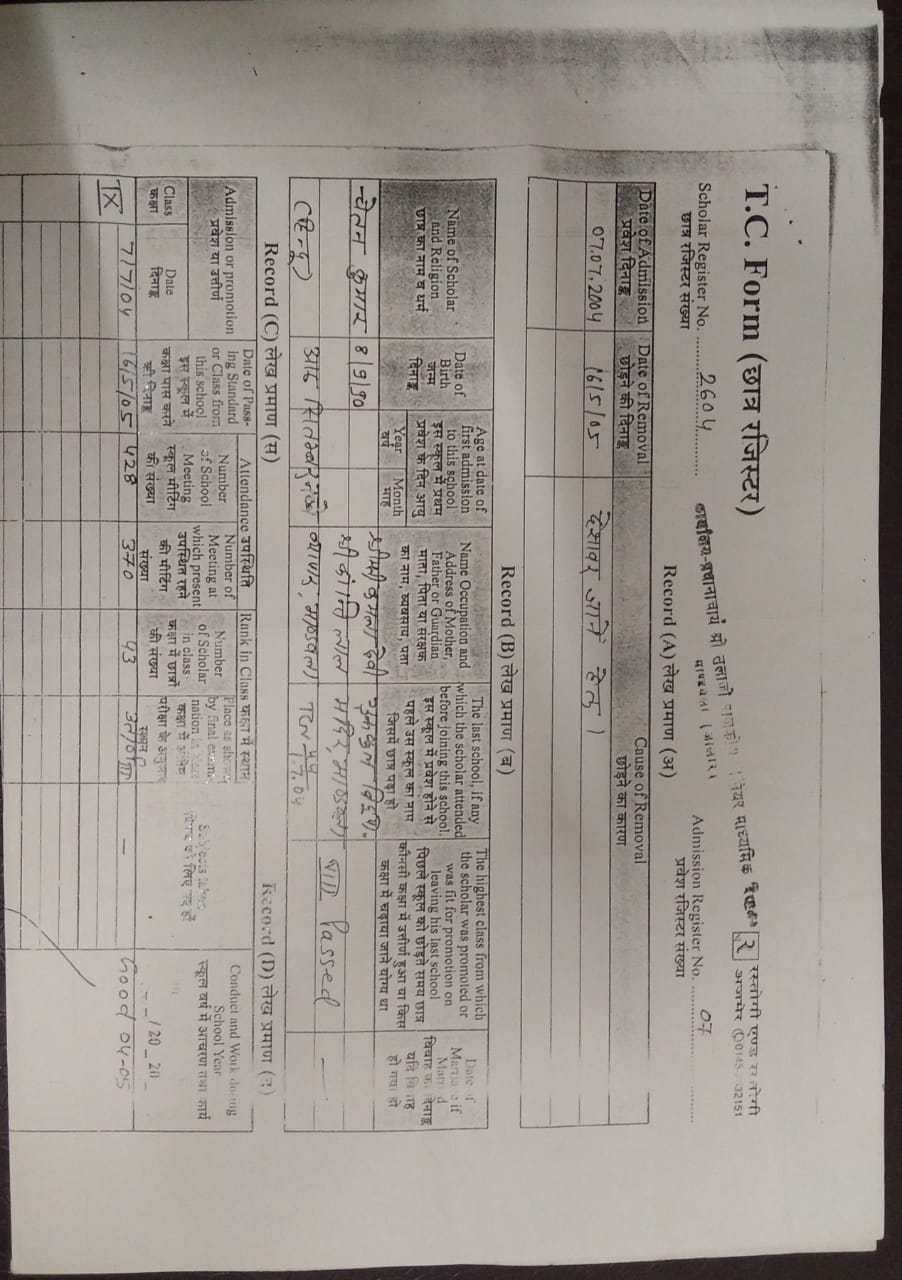 T.C. Form (छात्र रजिस्टर)
२ रस्तोगी एण्ड
अजमेर 0145
Scholar Register No. 2604
छात्र रजिस्टर संख्या
कार्यालय-प्रधानाचार्य श्री माध्यमिक
Admission Register No. 07
प्रवेश रजिस्टर संख्या
Record (A) लेख प्रमाण (अ)
Date of Admission
प्रवेश दिनाङ्क
Date of Removal
छोड़ने की दिनाङ्क
Cause of Removal
छोड़ने का कारण
07.07.2004 16/5/05 देसावर जाने हेतु ।
Record (B) लेख प्रमाण (ब)
Name of Scholar
and Religion
छात्र का नाम व धर्म
Date of
Birth
जन्म
दिनाङ्क
Age at date of
first admission
to this school
इस स्कूल में प्रथम
प्रवेश के दिन आयु
Year Month
वर्ष माह
Name Occupation and
Address of Mother,
Father or Guardian
माता, पिता या संरक्षक
का नाम, व्यवसाय, पता
The last school, if any
which the scholar attended
before joining this school.
इस स्कूल में प्रवेश होने से
पहले उस स्कूल का नाम
जिसमें छात्र पढ़ा हो
The highest class from which
the scholar was promoted or
was fit for promotion on
leaving his last school
पिछले स्कूल को छोड़ते समय छात्र
कौनसी कक्षा में उत्तीर्ण हुआ या किस
कक्षा में चढ़ाया जाने योग्य था
Date of
Marriage if
Married
विवाह का दिनाङ्क
यदि विवाह
हो गया हो
चेतन कुमार 8/9/90 श्रीमती कमला देवी
श्री कांन्ति लाल VIII Passed —
(हिन्दू) आठ सितम्बर व्यापार, माण्डवला
Record (C) लेख प्रमाण (स)
Record (D) लेख प्रमाण (द)
Admission or promotion
प्रवेश या उत्तीर्ण
Class
कक्षा
Date
दिनाङ्क
Date of Pass-
ing Standard
or Class from
this school
इस स्कूल में
कक्षा पास करने
की दिनाङ्क
Attendance उपस्थिति
Number
of School
Meeting
स्कूल मीटिंग
की संख्या
Number of
Meeting at
which present
उपस्थित रहने
की मीटिंग
संख्या
Rank in Class कक्षा में स्थान
Number
of Scholar
in class
कक्षा में छात्रों
की संख्या
Place as shown
by final exami-
nation in class
कक्षा में अन्तिम
परीक्षा के अनुसार
स्थान
Conduct and Work during
School Year
स्कूल वर्ष में आचरण तथा कार्य
IX 7/7/04 16/5/05 428 370 43 उत्तीर्ण — Good 04-05